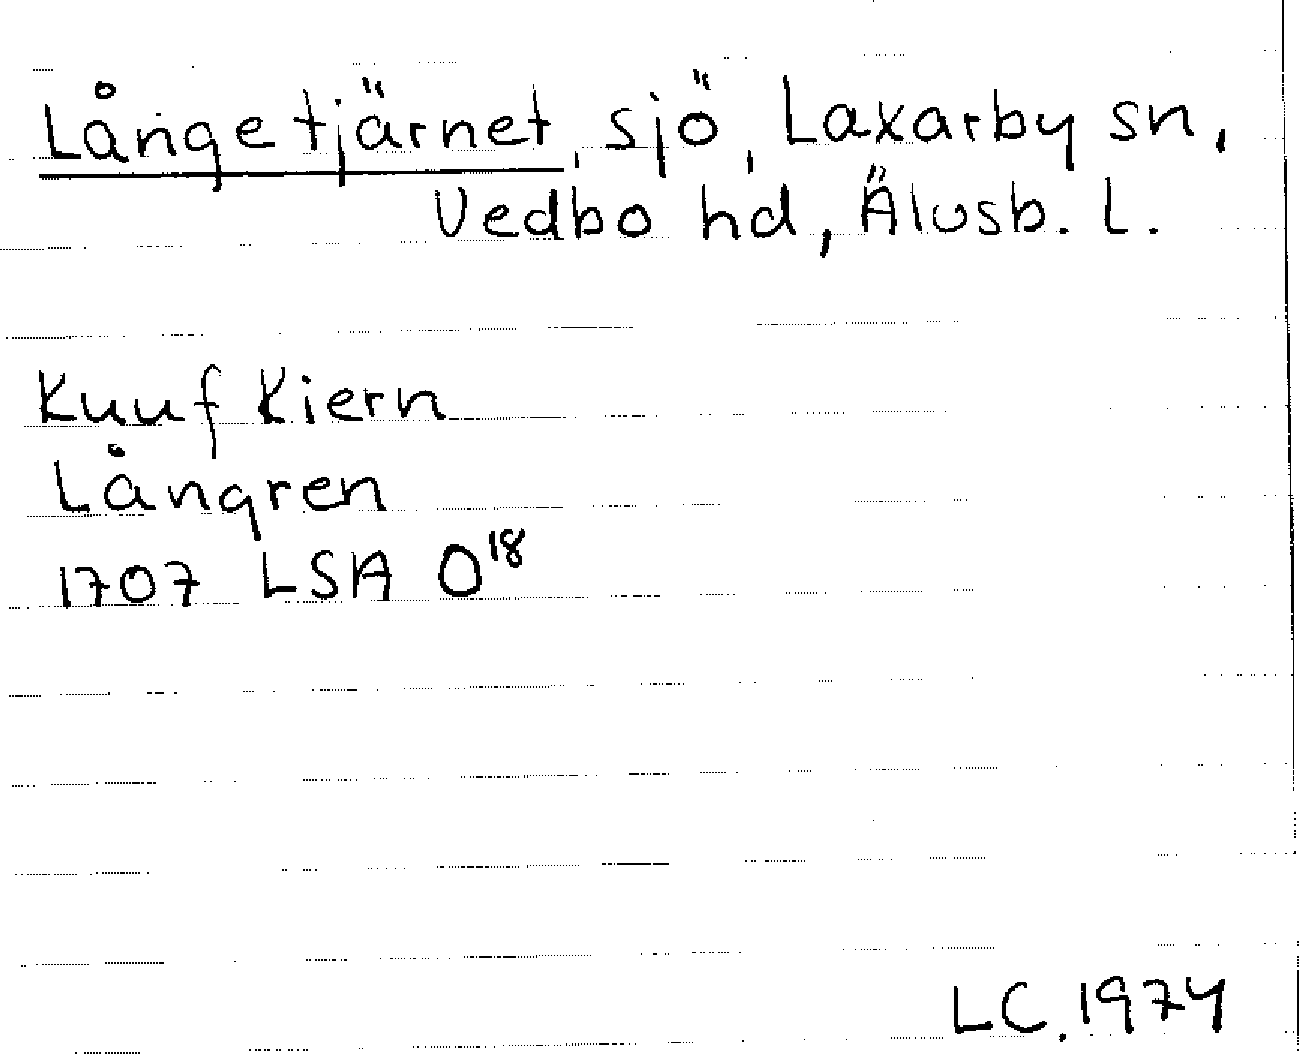 Långetjärnet, sjö, Laxarby sn,
Vedbo hd, Älvsb. l.
Kuuf Kiern
Långren
1707 LSA O18
LC. 1974